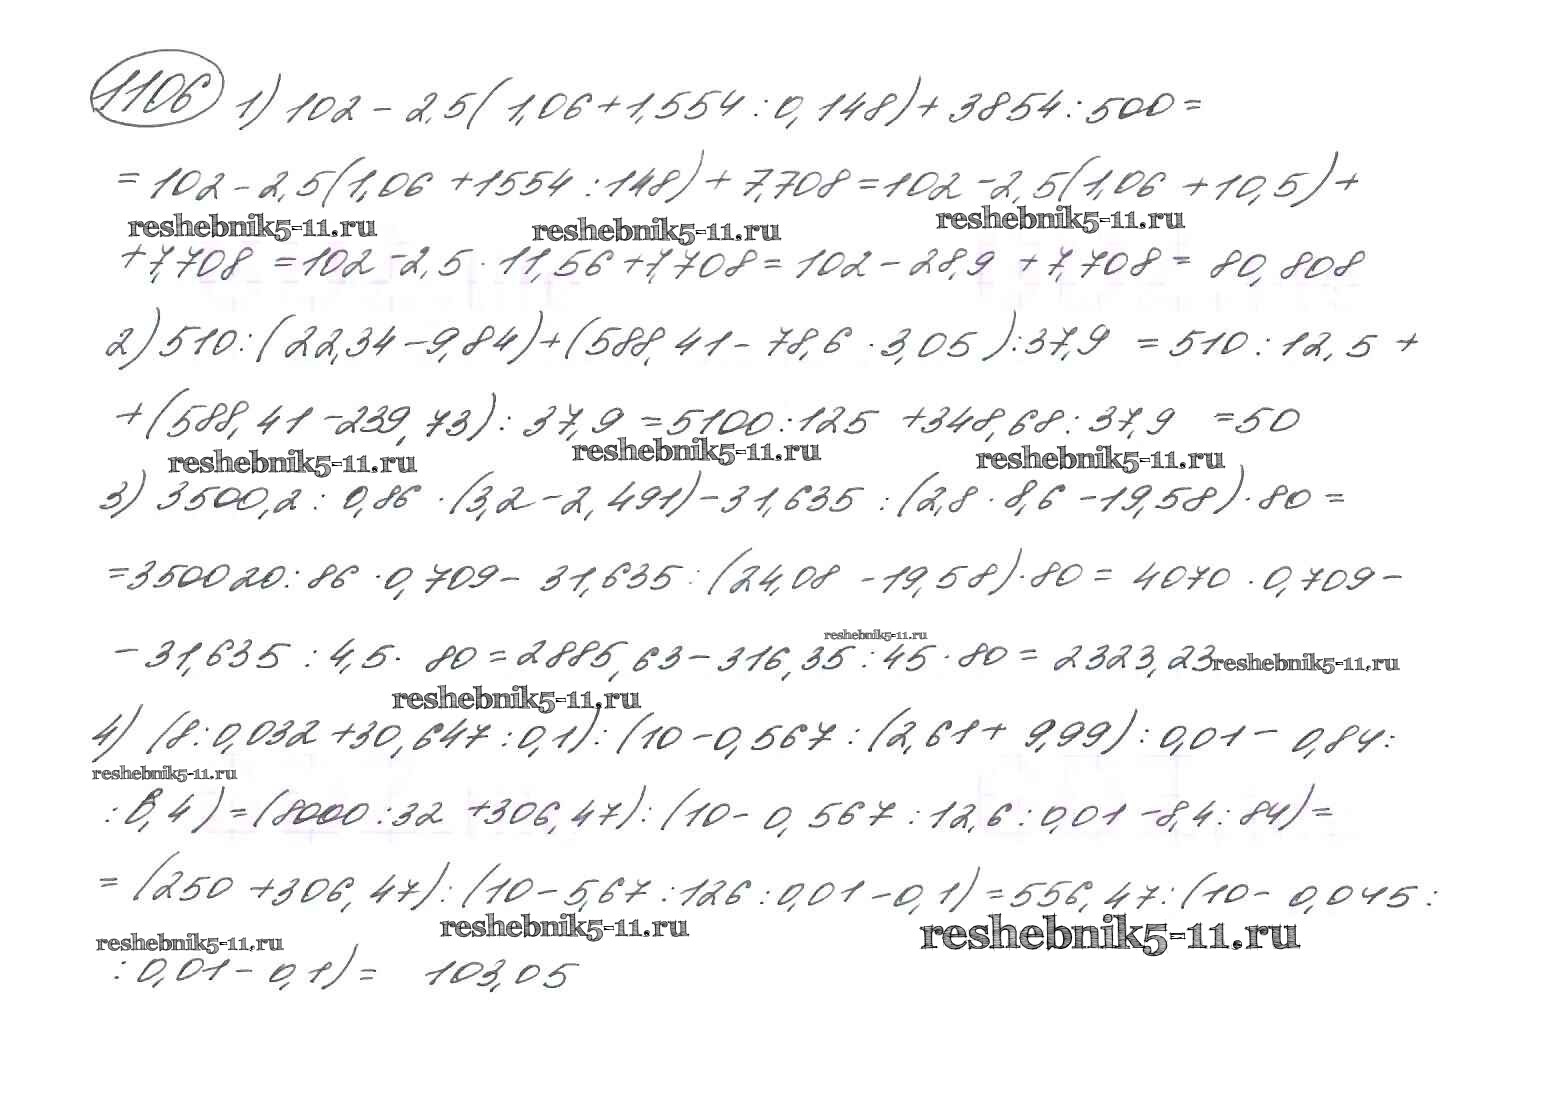 1106 1) 102 - 2,5(1,06+1,554:0,148)+3854:500=
=102-2,5(1,06+1554:148)+7,708=102-2,5(1,06+10,5)+
reshebnik5-11.ru reshebnik5-11.ru reshebnik5-11.ru
+7,708=102-2,5·11,56+7,708=102-28,9+7,708=80,808
2) 510:(22,34-9,84)+(588,41-78,6·3,05):37,9=510:12,5+
+(588,41-239,73):37,9=5100:125+348,68:37,9=50
reshebnik5-11.ru reshebnik5-11.ru reshebnik5-11.ru
3) 3500,2:0,86·(3,2-2,491)-31,635:(2,8·8,6-19,58)·80=
=350020:86·0,709-31,635:(24,08-19,58)·80=4070·0,709-
reshebnik5-11.ru
-31,635:4,5·80=2885,63-316,35:45·80=2323,23 reshebnik5-11.ru
reshebnik5-11.ru
4) (8:0,032+30,647:0,1):(10-0,567:(2,61+9,99):0,01-0,84:
reshebnik5-11.ru
:8,4)=(8000:32+306,47):(10-0,567:12,6:0,01-8,4:84)=
=(250+306,47):(10-5,67:126:0,01-0,1)=556,47:(10-0,045:
reshebnik5-11.ru reshebnik5-11.ru reshebnik5-11.ru
:0,01-0,1)= 103,05